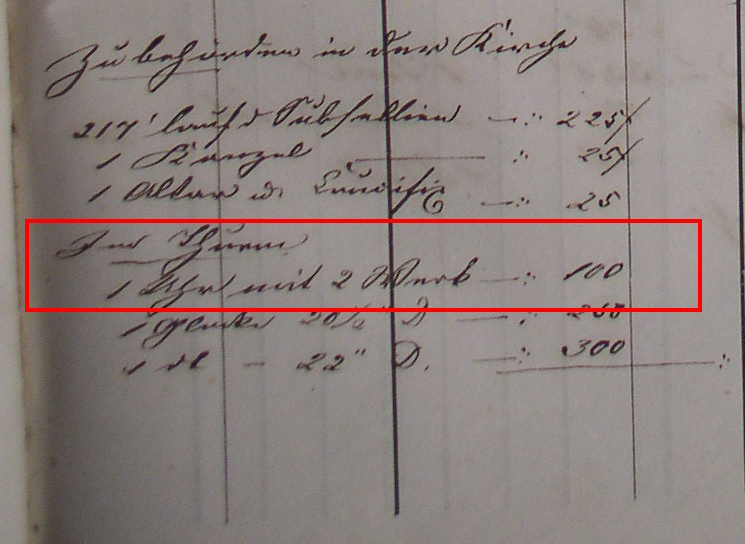 Zubehörden in der Kirche
217' laufd Subsellien —: 225/
1 Kanzel — : 25/
1 Altar u. Crucifix —: 25
Im Thurm
1 Uhr mit 2 Werk —: 100
1 Glocke 20½" D —: 250
1 dt — 22" D. —: 300